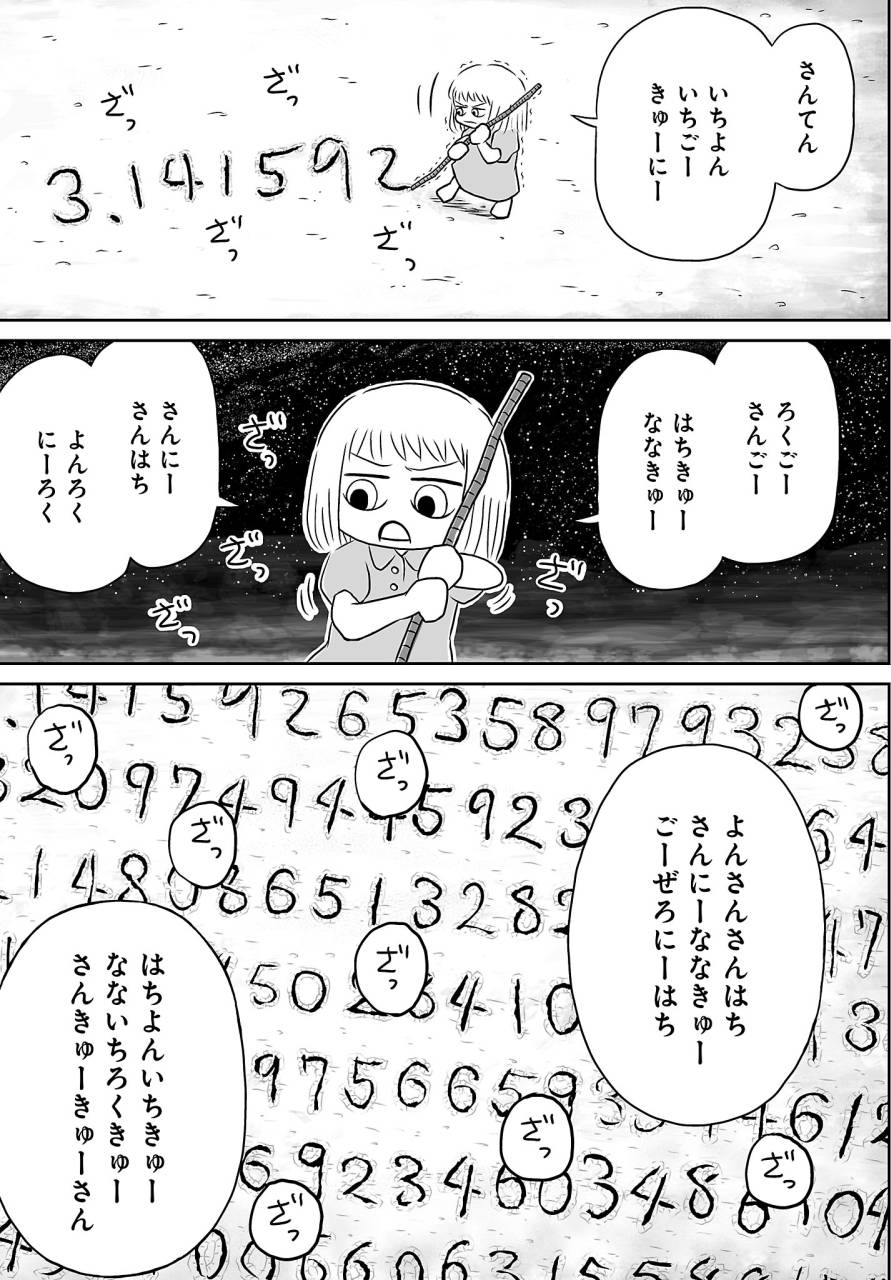 さんてん
いちよん
いちごー
きゅーにー
ざっ
ざっ
3.141592
ざっ
ざっ
ろくごー
さんごー
はちきゅー
ななきゅー
さんにー
さんはち
よんろく
にーろく
ざっ
ざっ
ざっ
ざっ
3.141592653589793238
ざっ
ざっ
ざっ
ざっ
よんさんさんはち
さんにーななきゅー
ごーぜろにーはち
3209749445923
64
148086513282
ざっ
17
5028410
13
はちよんいちきゅー
なないちろくきゅー
さんきゅーきゅーさん
97566593344612
ざっ
ざっ
69234603486104
ざっ